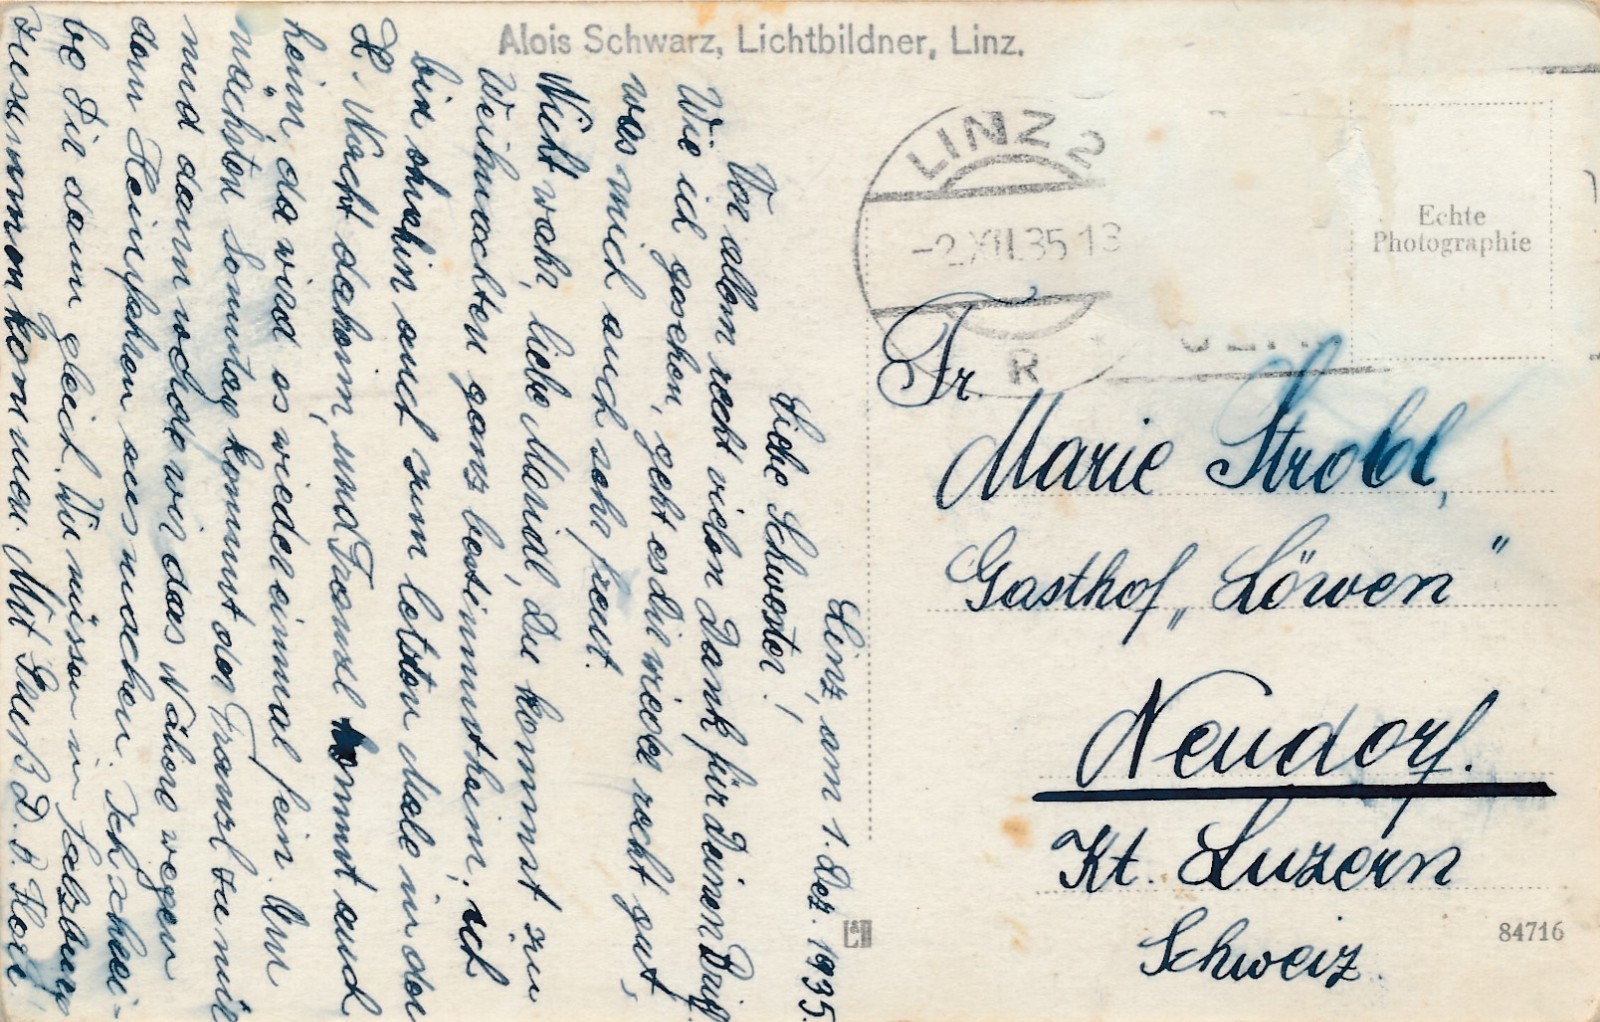 Alois Schwarz, Lichtbildner, Linz.
LINZ 2
-2.XII.35 13
R
Echte
Photographie
Fr.
Marie Strobl,
Gasthof „Löwen"
Neudorf.
Kt. Luzern
Schweiz.
84716
Linz, am 1. Dez. 1935.
Liebe Schwester!
Vor allem recht vielen Dank für Deinen Brief.
Wie ich gesehen, geht es dir wieder recht gut,
was mich auch sehr freut.
Nicht wahr, liebe Maridl, Du kommst zu
Weihnachten ganz bestimmt heim, ich
bin ohnehin auch zum letzten Male in der
Hl. Nacht daheim, und Franzl kommt auch
heim, da wird es wieder einmal fein. Am
nächsten Sonntag kommt der Franzl zu mir
und dann werden wir das Nähere wegen
dem Heimfahren ausmachen. Ich schrei-
be Dir dann gleich. Wir müssen in Salzburg
zusammenkommen. Mit Gruß D. B.